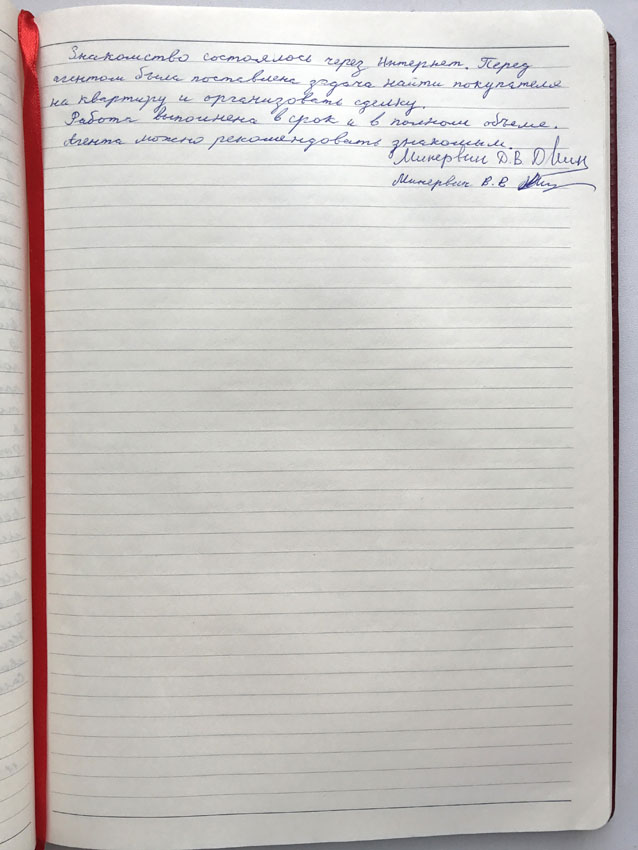 Знакомство состоялось через Интернет. Перед
агентом была поставлена задача найти покупателя
на квартиру и организовать сделку.
Работа выполнена в срок и в полном объеме.
Агента можно рекомендовать знакомым.
Минервин Д.В.
Минервин В.В